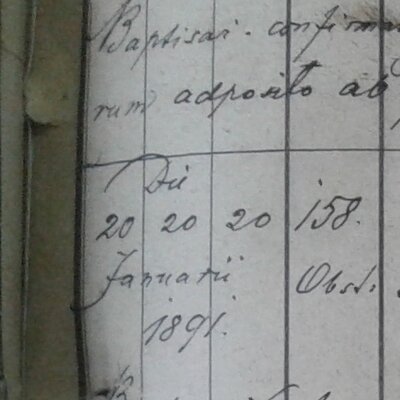 Baptisavi. confirma
rum adposito ab
Die
20 20 20 158.
Januarii Obst.
1891.